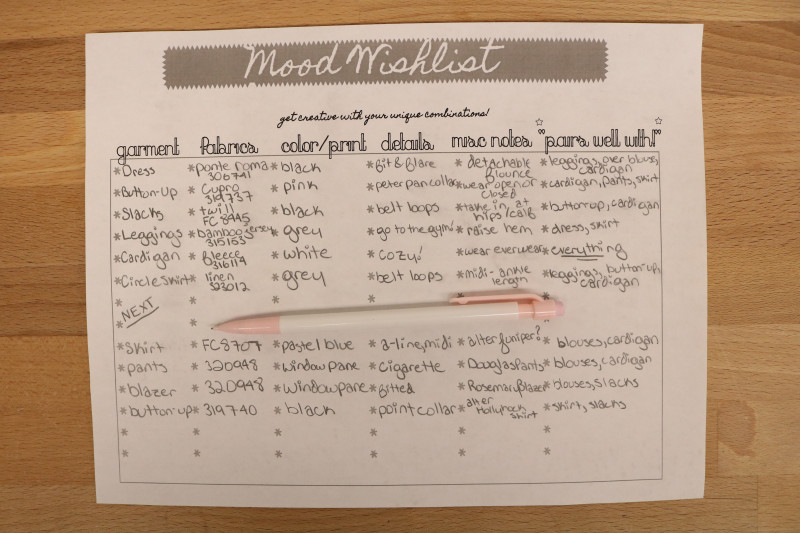 Mood Wishlist
get creative with your unique combinations!
garment fabrics color/print details misc notes "pairs well with!"
*Dress *ponte roma 306741 *black *fit & flare *detachable flounce *leggings, over blouse, cardigan
*Button-up *Cupro 319737 *pink *peter pan collar *wear open or closed *cardigan, pants, skirt
*Slacks *twill FC8445 *black *belt loops *take in at hips/calf *button up, cardigan
*Leggings *bamboo jersey 315163 *grey *go to the gym! *raise hem *dress, skirt
*Cardigan *fleece 316114 *white *cozy! *wear everwear *everything
*Circle Skirt *linen 323012 *grey *belt loops *midi-ankle length *leggings, button-up, cardigan
*NEXT
*Skirt *FC8707 *pastel blue *a-line, midi *alter juniper? *blouses, cardigan
*pants *320948 *windowpane *cigarette *Douglas Pants *blouses, cardigan
*blazer *320948 *windowpane *fitted *Rosemary Blazer *blouses, slacks
*button-up *319740 *black *point collar *alter Hollyhock shirt *skirt, slacks